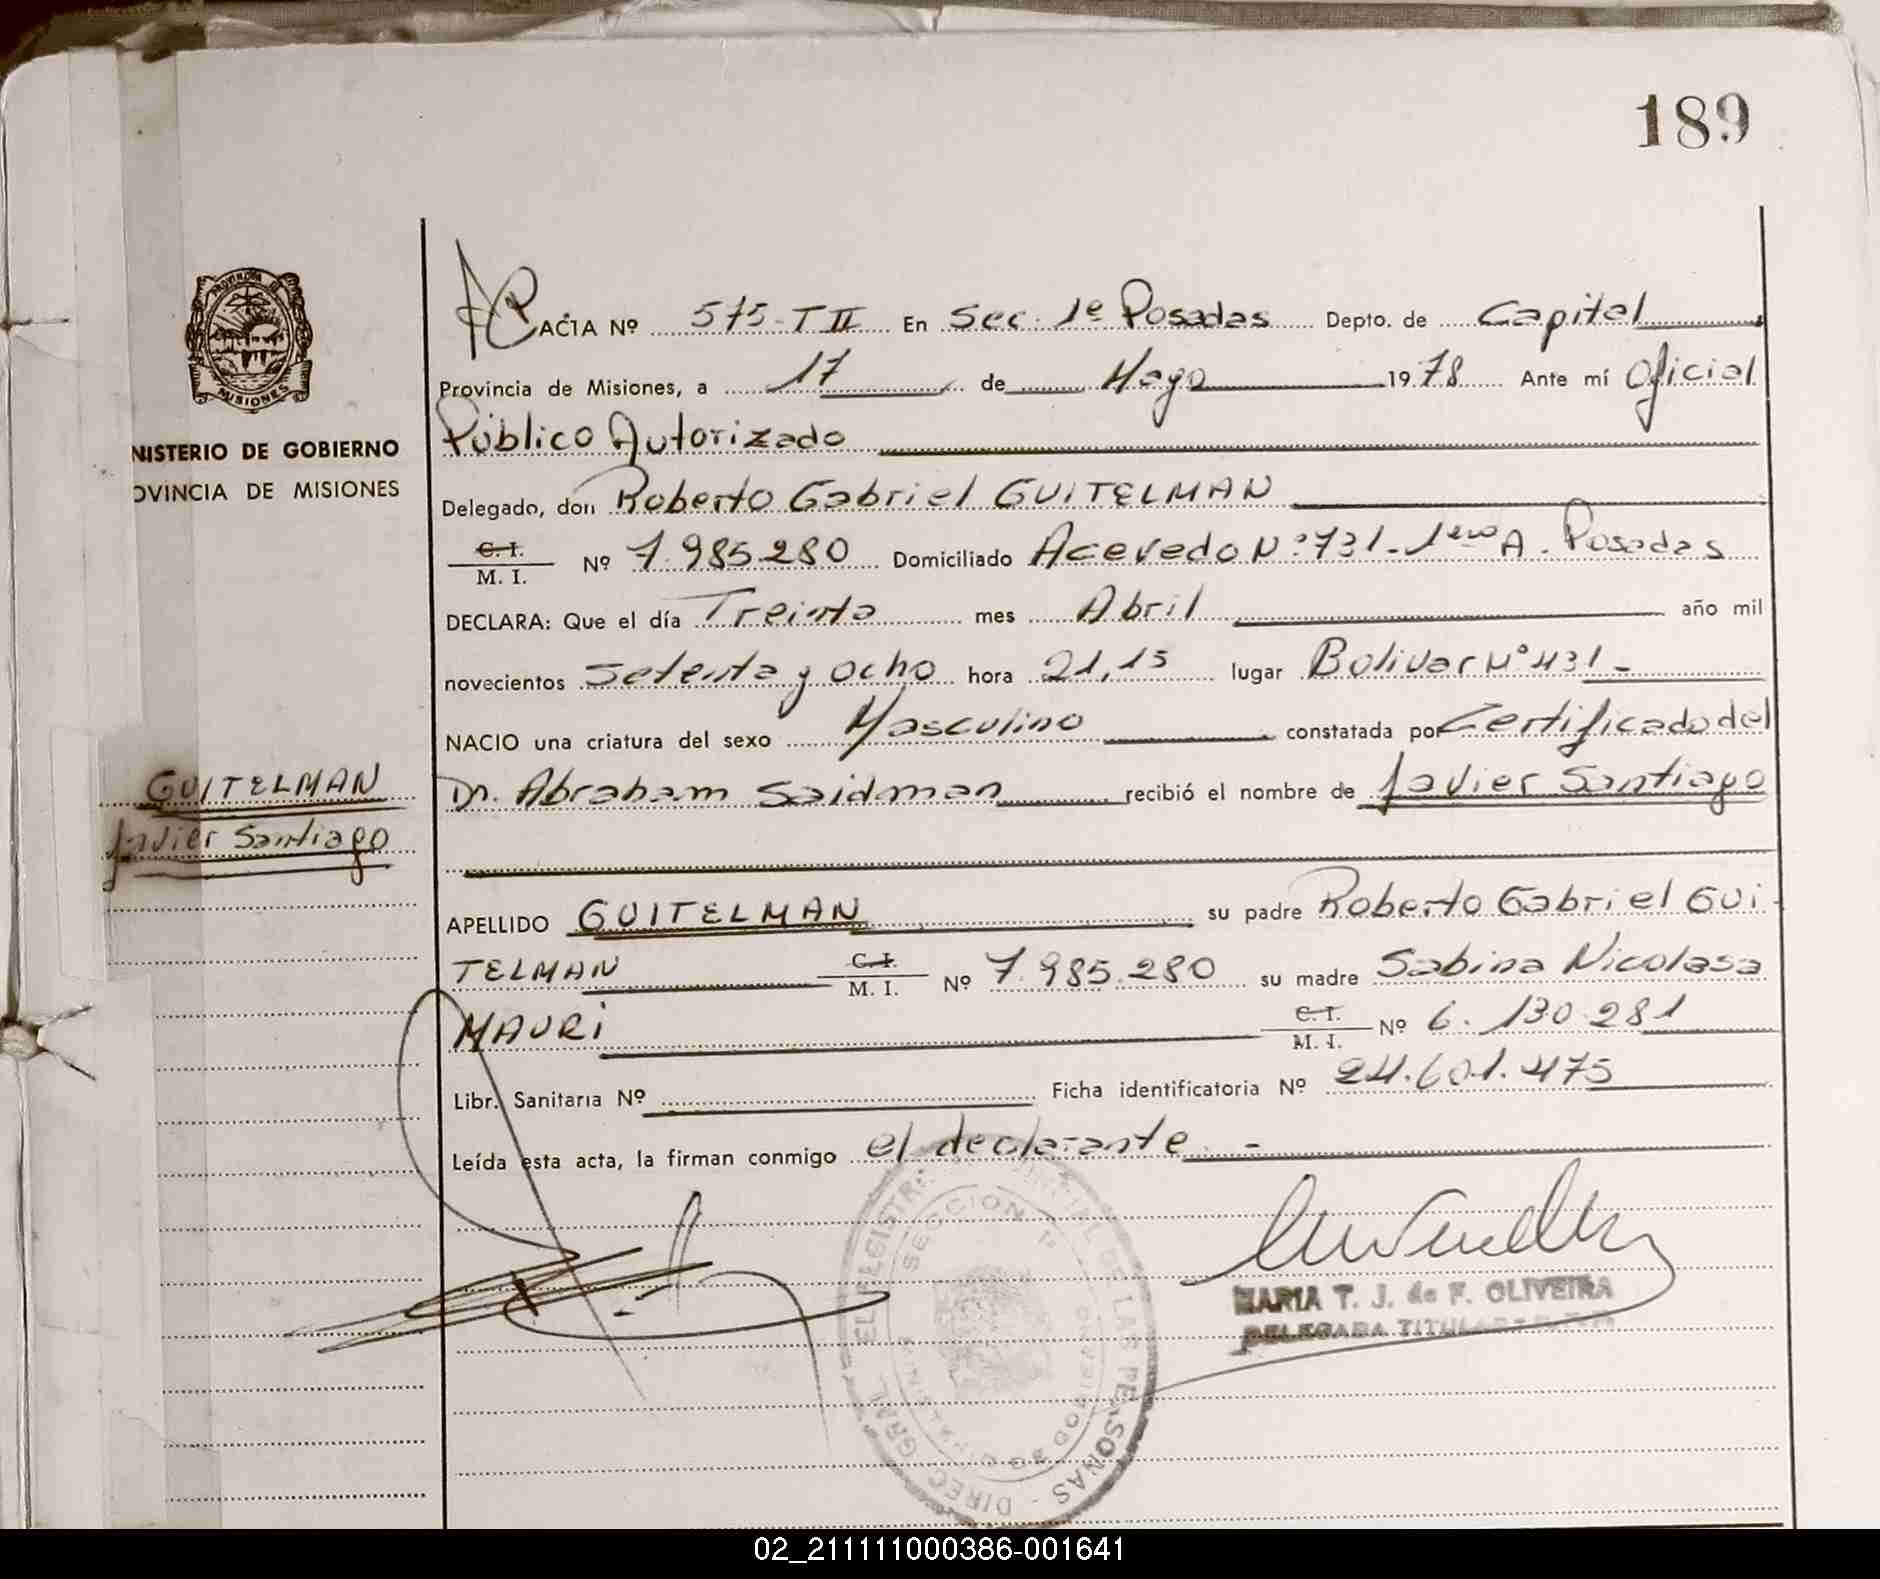 189
ACTA Nº 575-T II En Sec. 1ª Posadas Depto. de Capital
Provincia de Misiones, a 17 de Mayo 1978 Ante mí Oficial
Público Autorizado
NISTERIO DE GOBIERNO
OVINCIA DE MISIONES
Delegado, don Roberto Gabriel GUITELMAN
C. I.
M. I. Nº 7.985.280 Domiciliado Acevedo Nº 731 - 1ero A. Posadas
DECLARA: Que el día Treinta mes Abril año mil
novecientos Setenta y Ocho hora 21,15 lugar Bolivar Nº 431 -
NACIO una criatura del sexo Masculino constatada por Certificado del
Dr. Abraham Saidman recibió el nombre de Javier Santiago
GUITELMAN
Javier Santiago
APELLIDO GUITELMAN su padre Roberto Gabriel GUI-
TELMAN C. I. M. I. Nº 7.985.280 su madre Sabina Nicolasa
MAURI C. I. M. I. Nº 6.130.281
Libr. Sanitaria Nº Ficha identificatoria Nº 24.601.475
Leída esta acta, la firman conmigo el declarante. -
SECCION 1ª
DE LAS PERSONAS - DIREC. GRAL.
MARIA T. J. de F. OLIVEIRA
DELEGADA TITULAR
02_211111000386-001641